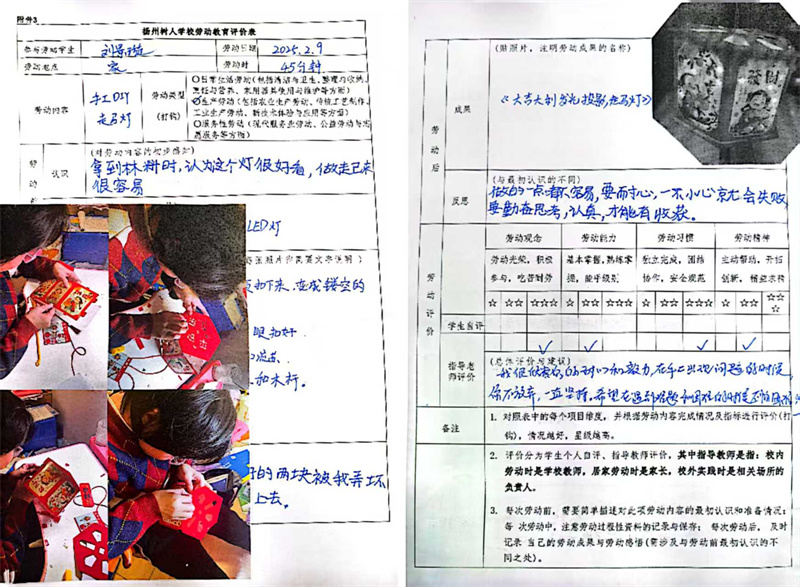 附件3
扬州树人学校劳动教育评价表
参与劳动学生
劳动日期 2025.2.9
劳动地点 家 劳动时 45分钟
劳动内容 手工DIY 走马灯
劳动类型 (打钩)
○日常生活劳动(包括清洁与卫生、整理与收纳、
烹饪与营养、家用器具使用与维护等方面)
生产劳动(包括农业生产劳动、传统工艺制作、
工业生产劳动、新技术体验与应用等方面)
○服务性劳动(现代服务业劳动、公益劳动与志
愿服务等方面)
(对劳动内容的初步感知)
认识 拿到材料时,认为这个灯很好看,做走已来
很容易
LED灯
扣下来,变成镂空的
眼扣好.
和木杆.
的两块被我弄坏
上去。
(贴照片,注明劳动成果的名称)
成果
《大吉大利 投影,走马灯》
劳动后
(与最初认识的不同)
反思 做的一点都不容易,要耐心,一不小心就会失败
要勤奋思考,认真,才能有收获。
劳动观念 劳动能力 劳动习惯 劳动精神
劳动光荣,积极 基本掌握,熟练掌 独立完成,团结 主动帮助,开拓
参与,吃苦耐劳 握,能手级别 协作,安全规范 创新,精益求精
劳动评价
☆ ☆☆ ☆☆☆ ☆ ☆☆ ☆☆☆ ☆ ☆☆ ☆☆☆ ☆ ☆☆ ☆☆☆
学生自评
指导老师评价
(总体评价与建议)
我很欣赏你的耐心和毅力,在手工出现问题的时候,
你不放弃,一直坚持。希望在遇到难题和困难的时候不怕
备注
1. 对照表中的每个项目维度,并根据劳动内容完成情况及指标进行评价(打
钩),情况越好,星级越高。
2. 评价分为学生个人自评、指导教师评价,其中指导教师是指:校内
劳动时是学校教师,居家劳动时是家长,校外实践时是相关场所的
负责人。
3. 每次劳动前,需要简单描述对此项劳动内容的最初认识和准备情况;
每 次劳动中,注意劳动过程性资料的记录与保存; 每次劳动后, 及时
记录 自己的劳动成果与劳动感悟(需涉及与劳动前最初认识的不
同之处)。